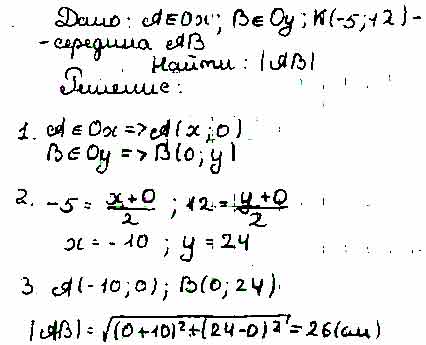 Дано: A∈Ox; B∈Oy; K(-5;12)-
-середина AB
Найти: |AB|
Решение:
1. A∈Ox => A(x;0)
B∈Oy => B(0;y)
2. -5 = (x+0)/2 ; 12 = (y+0)/2
x = -10 ; y = 24
3 A(-10;0); B(0;24)
|AB| = √((0+10)²+(24-0)²) = 26(см)